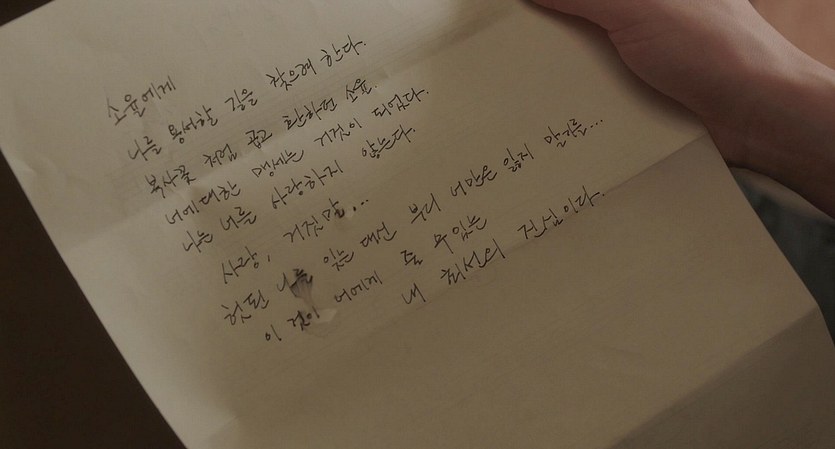 소율에게
나를 용서할 길을 찾으려 한다.
복사꽃 처럼 곱고 환하던 소율.
너에대한 맹세는 거짓이 되었다.
나는 너를 사랑하지 않는다.
사랑, 거짓말...
헛된 나를 잊는 대신 부디 너만은 잃지 말기를...
이 것이 너에게 줄 수있는
내 최선의 진심이다.